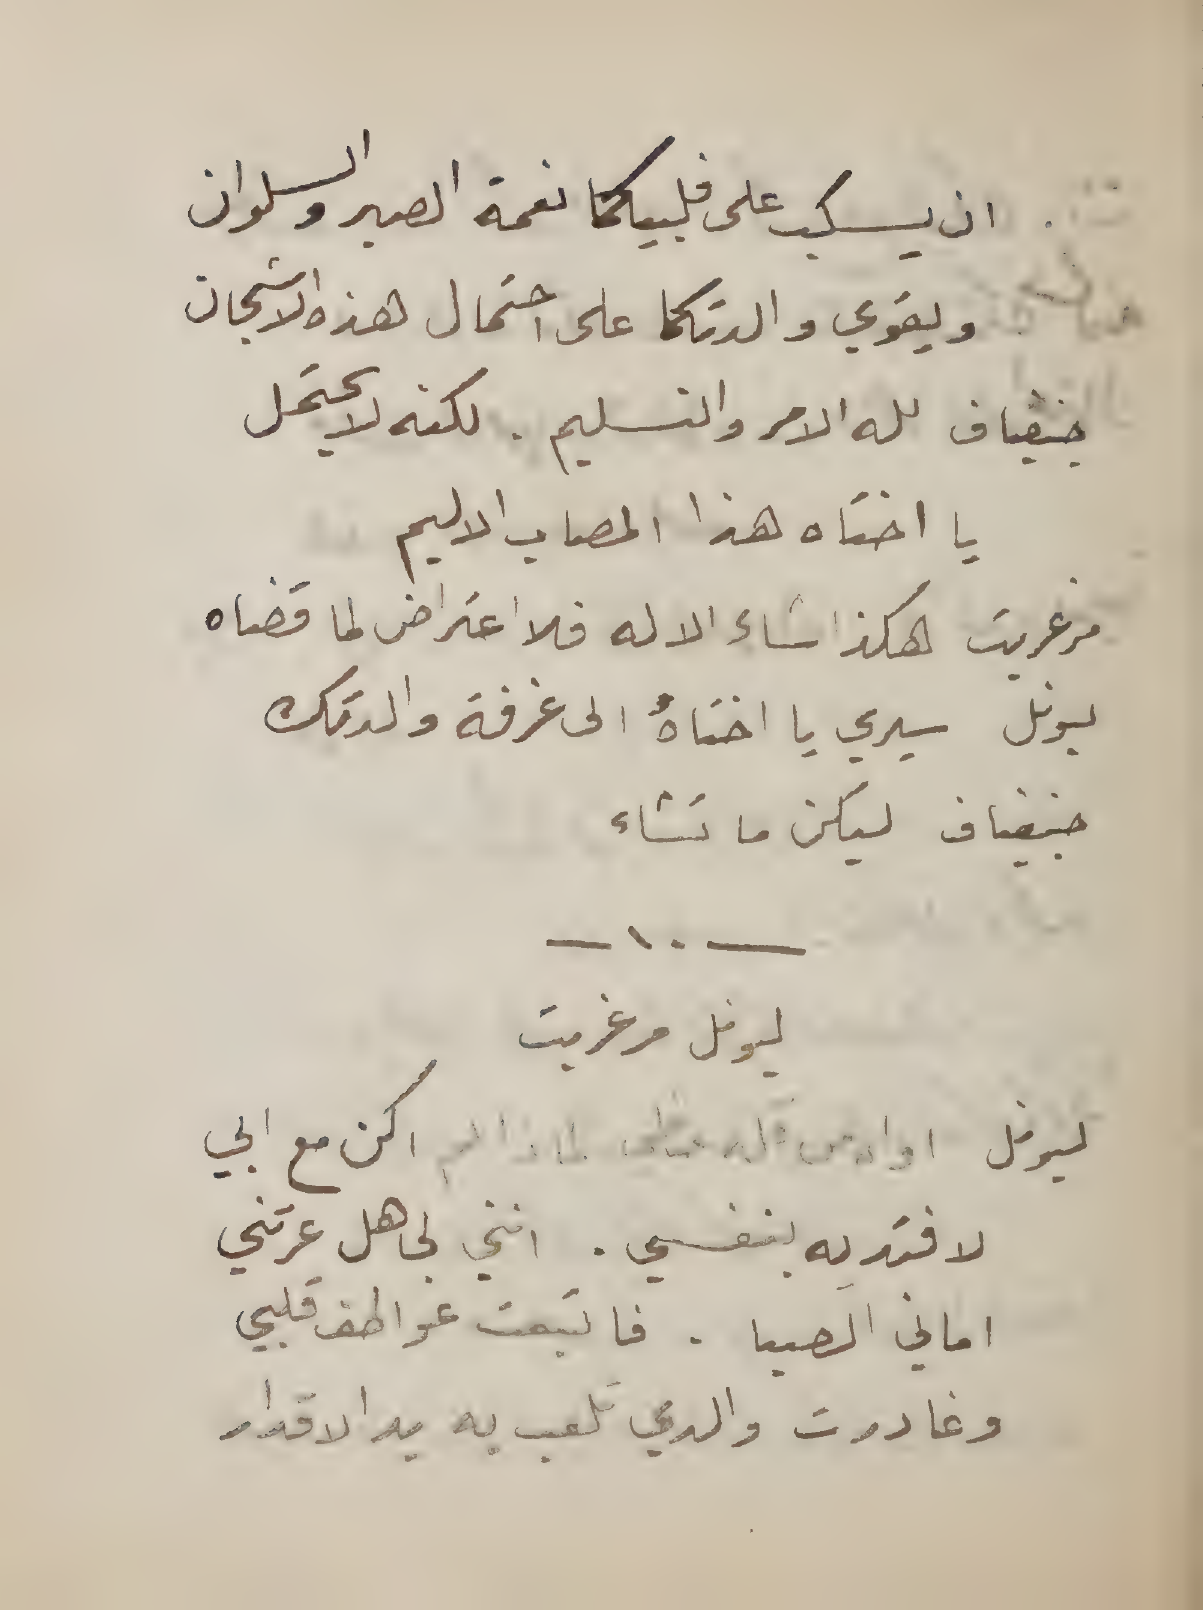 ان يسكب على قلبيكما نعمة الصبر والسلوان
ويقوي والدتكما على احتمال هذه الاشجان
جنفياف لله الامر والتسليم . لكنه لا يحتمل
يا اختاه هذا المصاب الاليم
مرغريت هكذا شاء الاله فلا اعتراض لما قضاه
ليونل سيري يا اختاهُ الى غرفة والدتك
جنفياف ليكن ما تشاء
— ١٠ —
ليونل مرغريت
ليونل اواه من قلة عقلي لماذا لم اكن مع ابي
لافتديه بنفسي . انني لجاهل غرتني
اماني الصبا . فاتبعت عواطف قلبي
وغادرت والدي تلعب به يد الاقدار